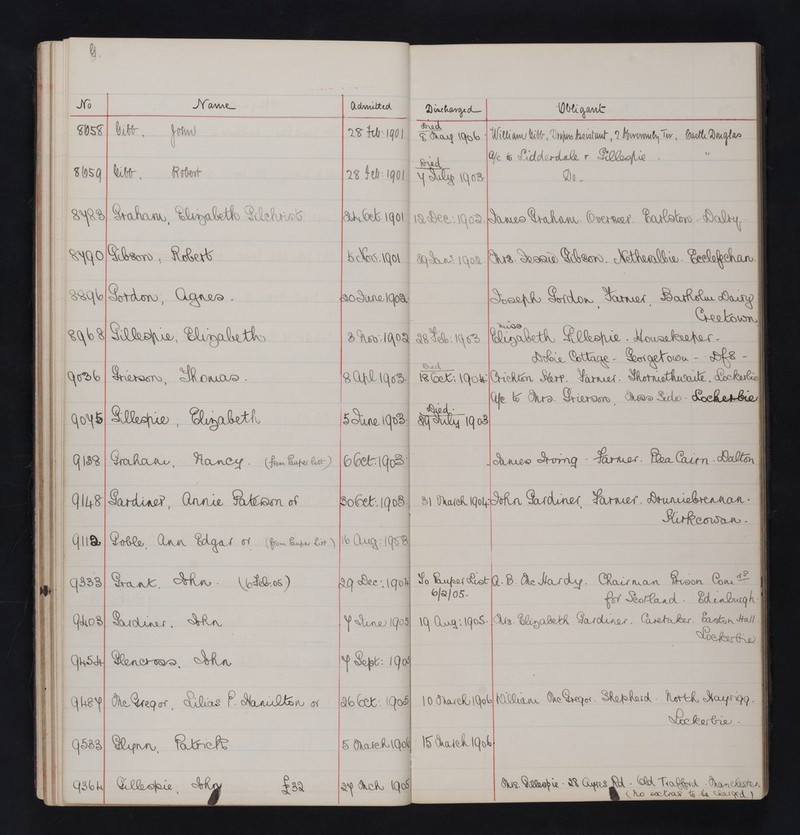 G.
No Name Admitted Discharged Obligant
8058 Gibb, John 28 Feb 1901 Died 8 1906 William Gibb, Assistant, 2 Terr. Castle Douglas
a/c to Lidderdale & Gillespie "
8059 Gibb, Robert 28 Feb 1901 Died 7 July 1903 Do.
8783 Graham, Elizabeth Gilchrist Oct 1901 12 Dec: 1902 James Graham Overseer Earlston Dalry
8790 Gibson, Robert Nov: 1901 29 Jan: 1902 Mrs. Jessie Gibson. Netheralbie. Ecclefechan
8896 Gordon, Agnes. 20 June 1902 Joseph Gordon, Farmer, Barholm
Creetown
8968 Gillespie, Elizabeth 3 Nov: 1902 28 Feb: 1903 Miss Elizabeth Gillespie. Housekeeper.
Cottage - Georgetown - Dfs -
9036 Grierson, Thomas 8 Apl 1903 Died 18 Oct: 1904 Crichton Farmer. Thorniethwaite, Lockerbie
a/c to Mrs. Grierson, Moss Side. Lockerbie
9075 Gillespie, Elizabeth 5 June 1903 Died. 29 July 1903
9138 Graham, Nancy. (from Pauper List) 6 Oct: 1903 James Irving - Farmer. Rea Cairn. Dalton
9148 Gardiner, Annie Paterson or 30 Oct: 1903 31 March 1904 John Gardiner, Farmer. Drumiebrennan.
Kirkcowan.
9112 Goble, Ann Edgar or (from Pauper List) 16 Aug: 1903
9333 Grant, John. (6 Feb: 05) 29 Dec: 1904 To Pauper List 6/2/05. A. B. McHardy. Chairman Prison Comrs
for Scotland. Edinburgh
9403 Gardiner, John 7 June 1905 19 Aug: 1905. Mrs. Elizabeth Gardiner. Caretaker. Easton Hall
Lockerbie
9454 Glencross, John 7 Sept: 1905
9487 McGregor, Lilias P. Hamilton or 26 Oct: 1905 10 March 1906 William McGregor. Shepherd. North Hayrigg.
Lockerbie.
9583 Glynn, Patrick 5 March 1906 15 March 1906
9364 Gillespie, John £32 27 Mch 1905 Mrs. Gillespie. 28 Ayres Rd. Old Trafford. Manchester
(No extras to be charged)